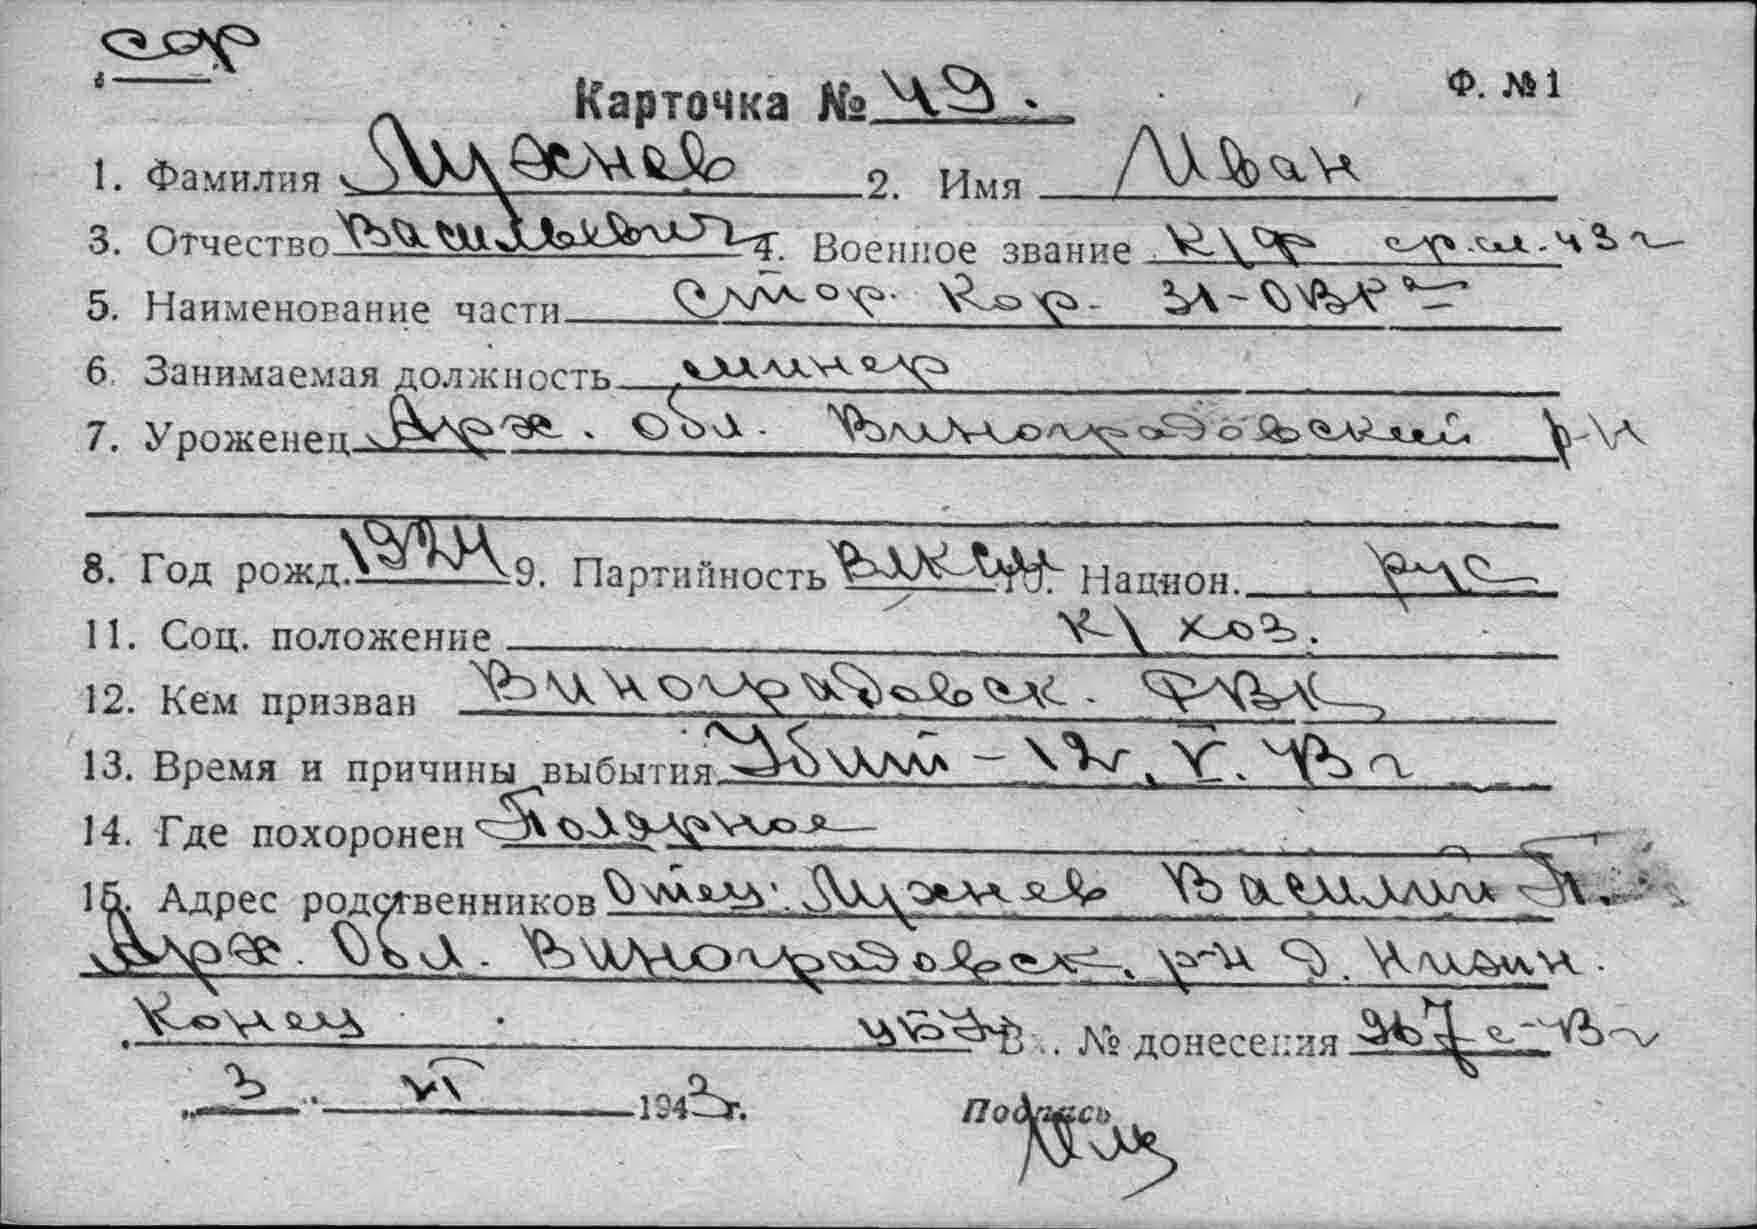 сф
Карточка № 49.
Ф. № 1
1. Фамилия Лухнев 2. Имя Иван
3. Отчество Васильевич 4. Военное звание к/ф ср.сл. 43 г
5. Наименование части Стор. кор. 31-ОВРа
6. Занимаемая должность минер
7. Уроженец Арх. обл. Виноградовский р-н
8. Год рожд. 1924 9. Партийность ВЛКСМ 10. Национ. рус
11. Соц. положение к/хоз.
12. Кем призван Виноградовск. РВК
13. Время и причины выбытия Убит - 12. V. 43 г
14. Где похоронен Полярное
15. Адрес родственников Отец: Лухнев Василий П.
Арх. Обл. Виноградовск. р-н д. Нижн.
Конец В . № донесения 967с-43 г
3 VI 1943 г.
Подпись